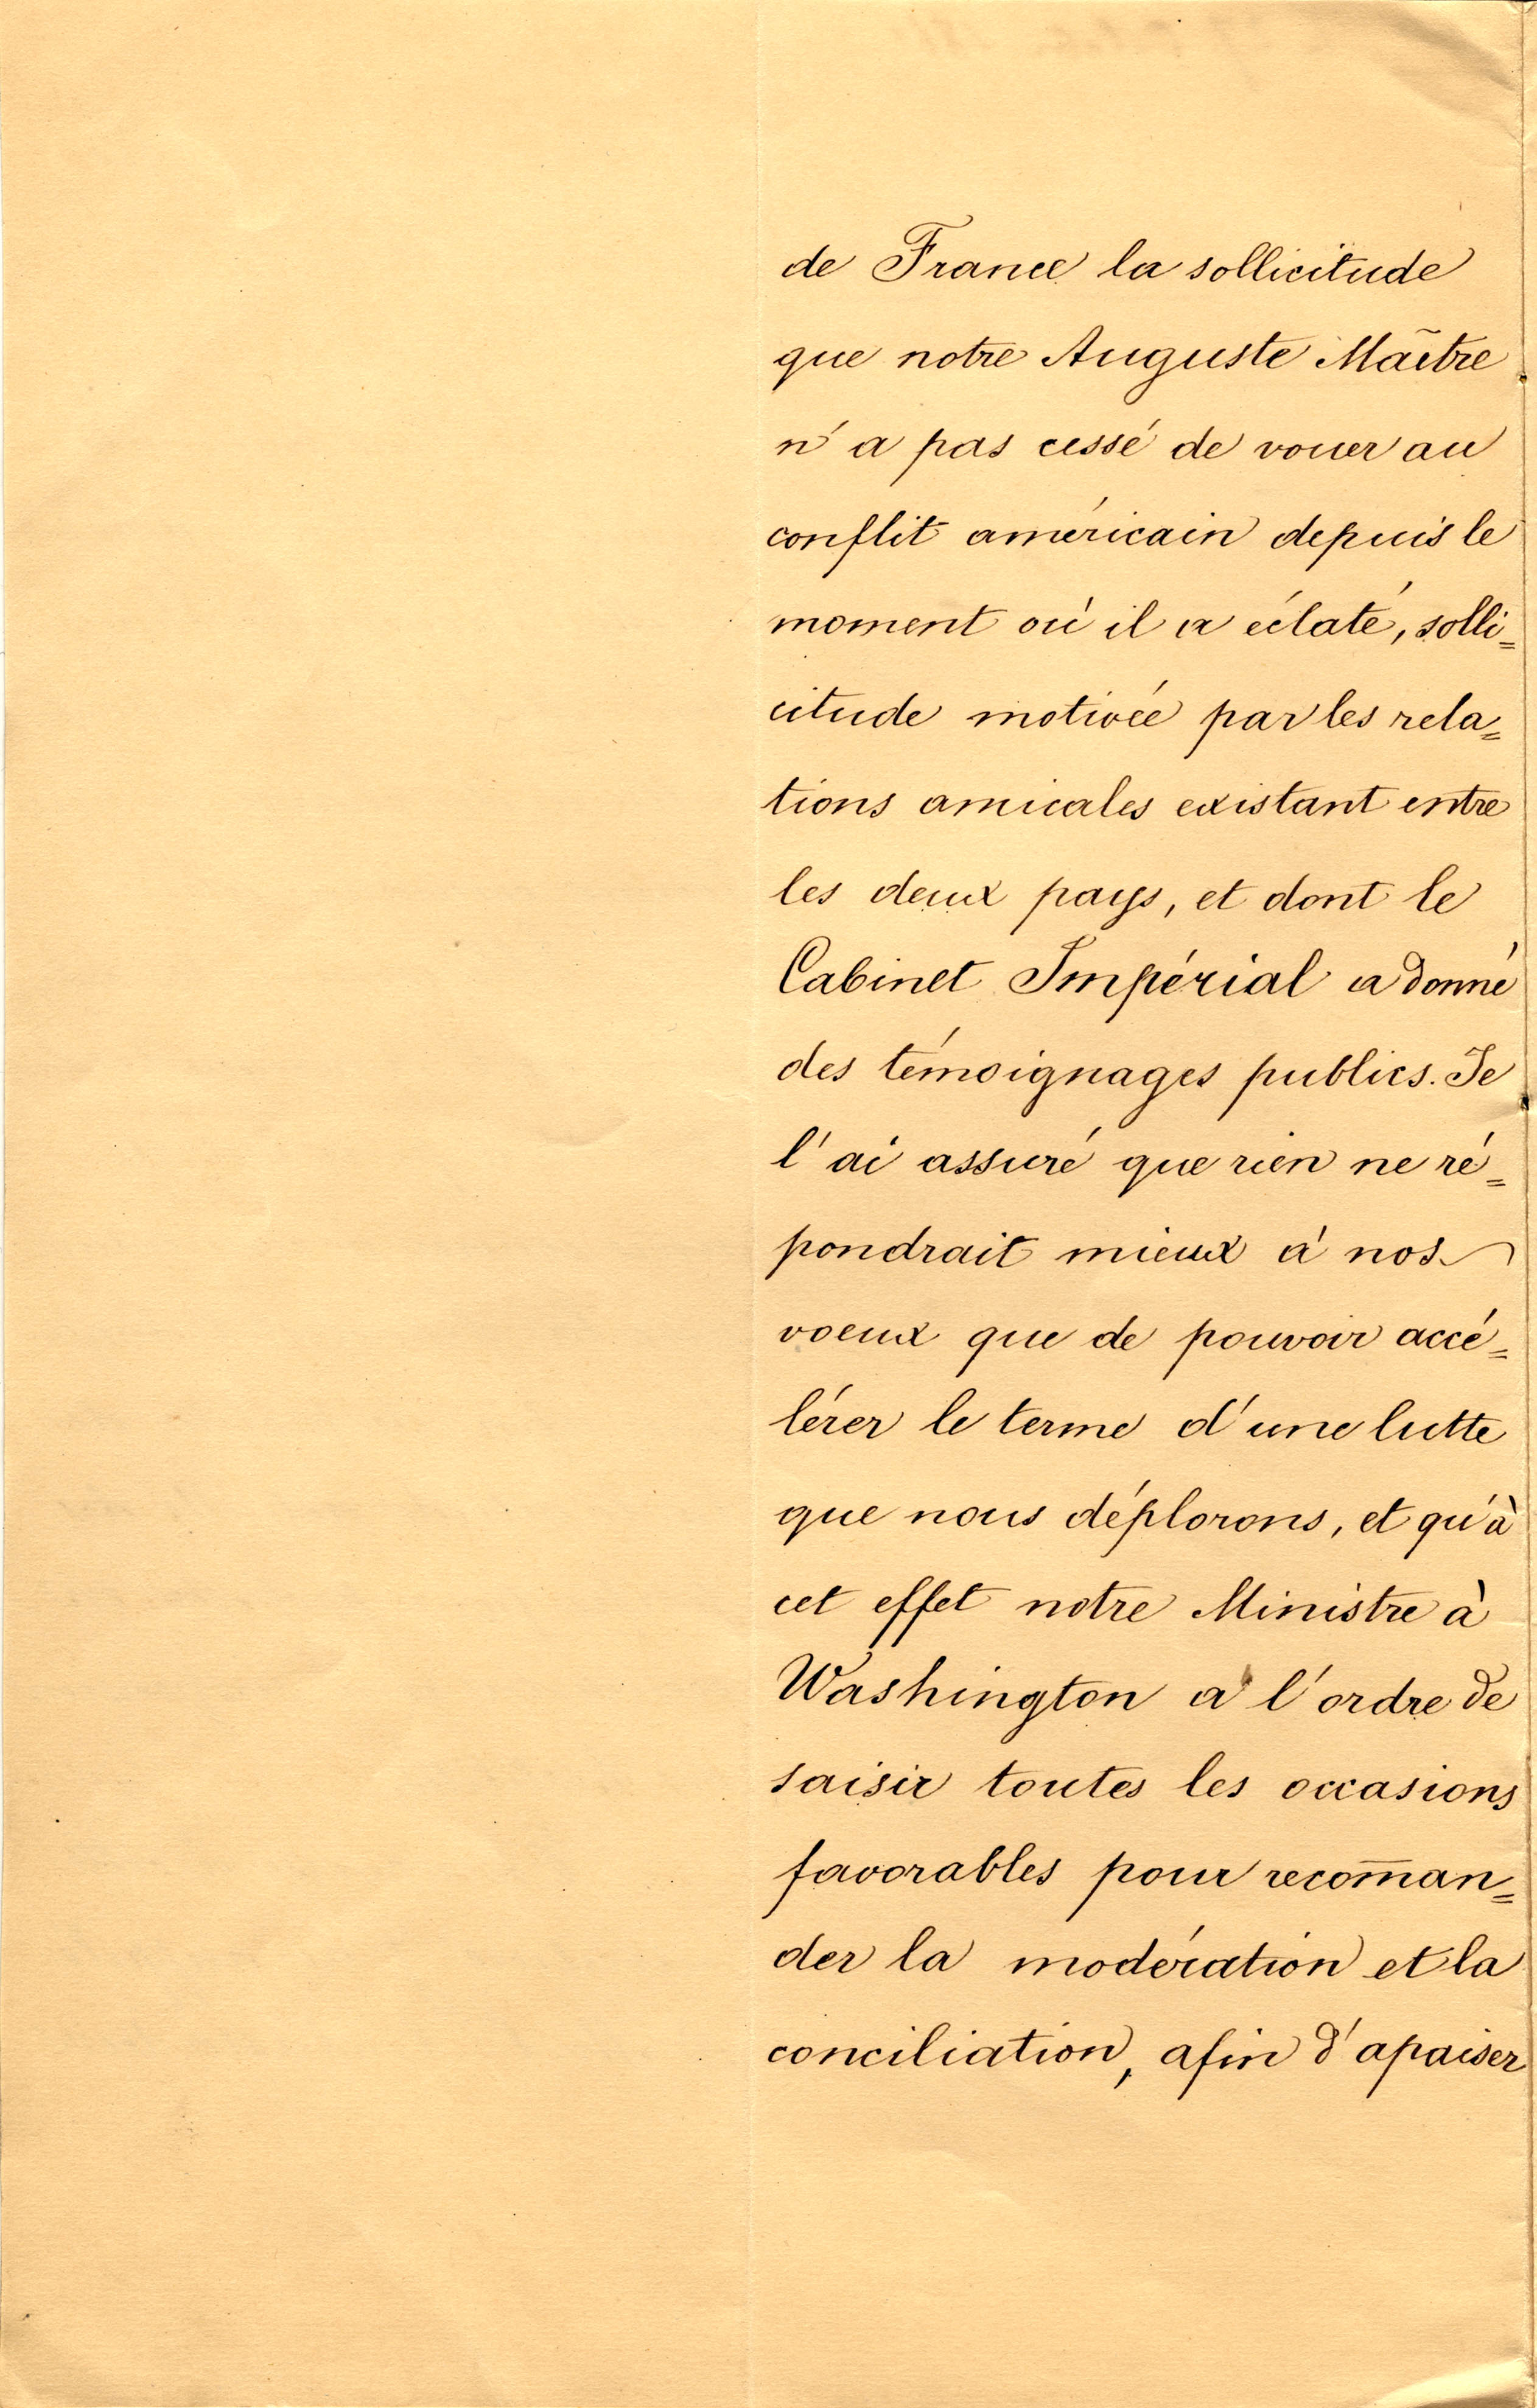 de France la sollicitude
que notre Auguste Maître
n'a pas cessé de vouer au
conflit américain depuis le
moment où il a éclaté, solli=
citude motivée par les rela=
tions amicales existant entre
les deux pays, et dont le
Cabinet Impérial a donné
des témoignages publics. Je
l'ai assuré que rien ne ré=
pondrait mieux à nos
voeux que de pouvoir accé=
lérer le terme d'une lutte
que nous déplorons, et qu'à
cet effet notre Ministre à
Washington a l'ordre de
saisir toutes les occasions
favorables pour recom̄an=
der la modération et la
conciliation, afin d'apaiser